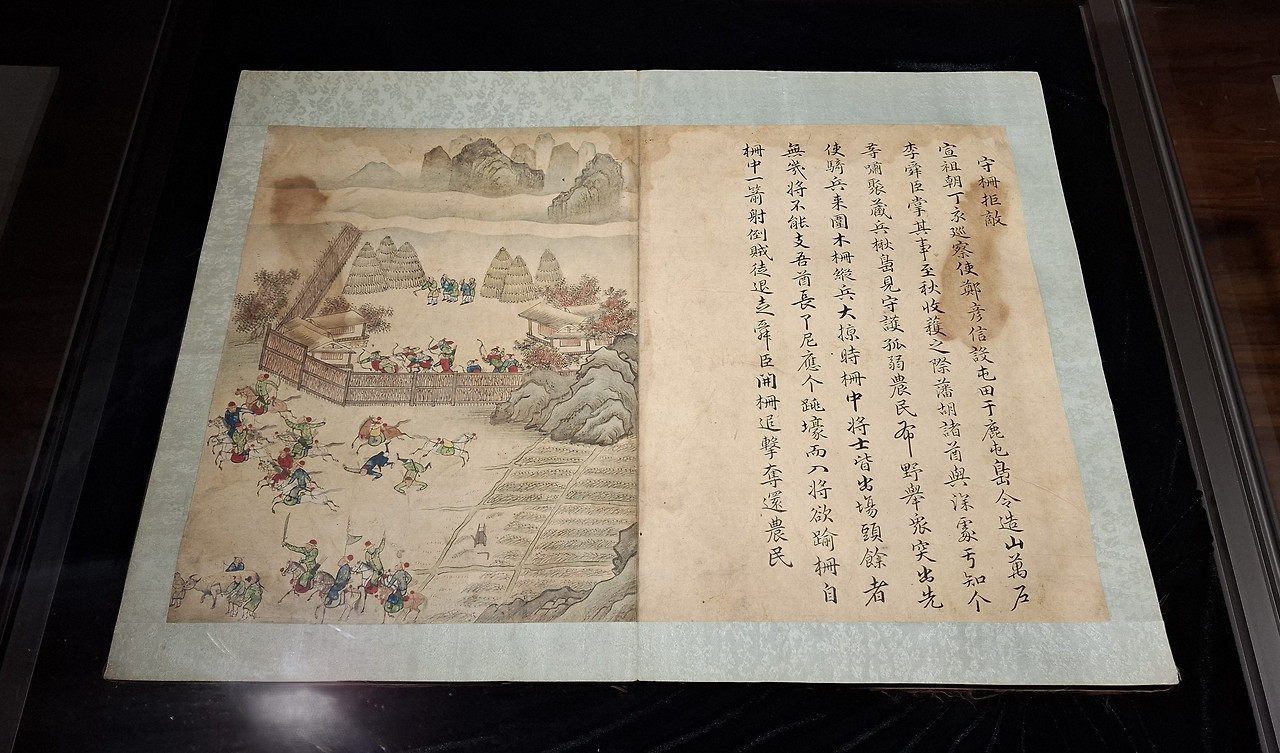 守柵拒敵
宣祖朝丁亥巡察使鄭彦信設屯田于鹿屯島令造山萬戶
李舜臣掌其事至秋收穫之際藩胡諸酋與深處亐知个
等嘯聚藏兵楸島見守護孤弱農民布野擧衆突出先
使騎兵来圍木柵縱兵大掠時柵中將士皆出塲頭餘者
無幾將不能支吾酋長亇尼應个跳壕而入將欲踰柵自
柵中一箭射倒賊徒退走舜臣開柵追擊奪還農民